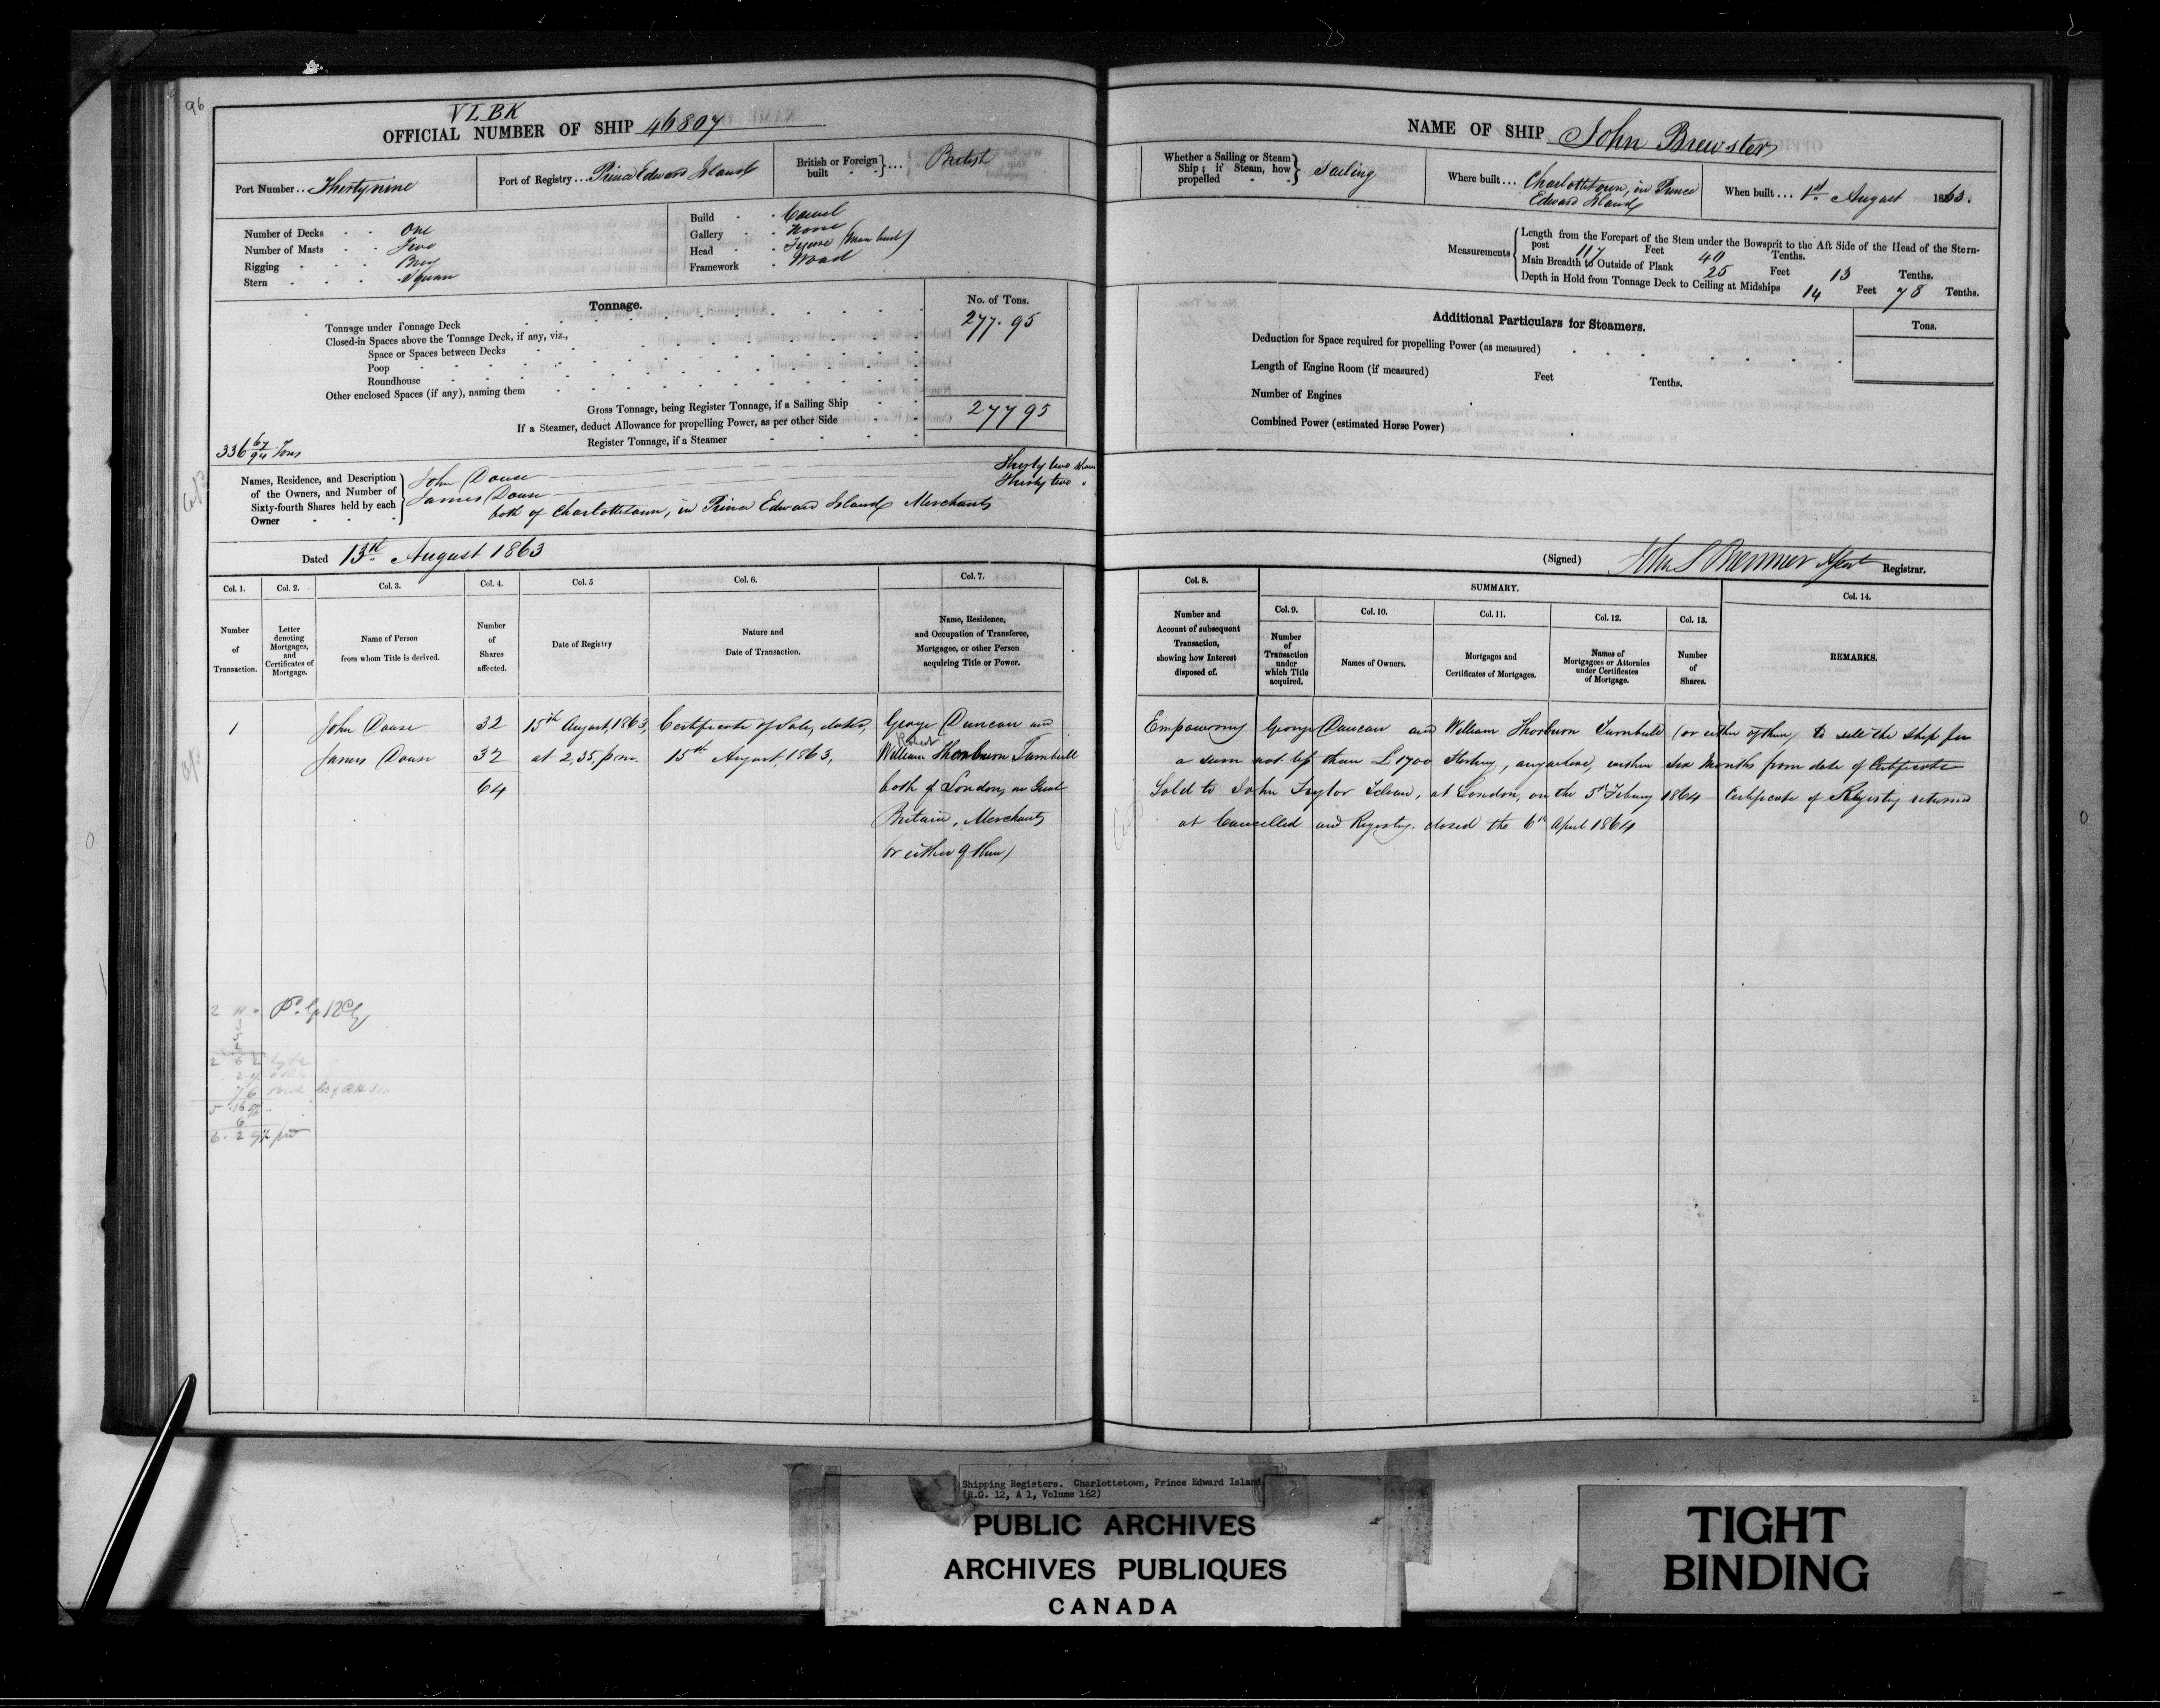 96
VLBK
OFFICIAL NUMBER OF SHIP 46807
Port Number... Thirty nine
Port of Registry... Prince Edward Island
British or Foreign built ... British
Number of Decks One
Number of Masts Two
Rigging Brig
Stern Square
Build Carvel
Gallery None
Head Figure (Man bust)
Framework Wood
Tonnage. No. of Tons.
Tonnage under Tonnage Deck 277.95
Closed-in Spaces above the Tonnage Deck, if any, viz.,
Space or Spaces between Decks
Poop
Roundhouse
Other enclosed Spaces (if any), naming them
Gross Tonnage, being Register Tonnage, if a Sailing Ship 277 95
If a Steamer, deduct Allowance for propelling Power, as per other Side
Register Tonnage, if a Steamer
336 67/94 Tons
Names, Residence, and Description of the Owners, and Number of Sixty-fourth Shares held by each Owner
John Douse Thirty two Shares
James Douse Thirty two "
both of Charlottetown, in Prince Edward Island Merchants
Dated 13th August 1863
Col. 1. Col. 2. Col. 3. Col. 4. Col. 5 Col. 6. Col. 7.
Number of Transaction.
Letter denoting Mortgages, and Certificates of Mortgage.
Name of Person from whom Title is derived.
Number of Shares affected.
Date of Registry
Nature and Date of Transaction.
Name, Residence, and Occupation of Transferee, Mortgagee, or other Person acquiring Title or Power.
1 John Douse 32 15th August, 1863, Certificate of Sale, dated, George Duncan and
Robert
James Douse 32 at 2,35, p.m. 15th August, 1863, William Thorburn Turnbull
64 both of London, in Great
Britain, Merchants
(or either of them)
NAME OF SHIP John Brewster
Whether a Sailing or Steam Ship; if Steam, how propelled Sailing
Where built... Charlottetown, in Prince Edward Island
When built... 1st August 1863.
Measurements
Length from the Forepart of the Stem under the Bowsprit to the Aft Side of the Head of the Stern-
post 117 Feet 40 Tenths.
Main Breadth to Outside of Plank 25 Feet 13 Tenths.
Depth in Hold from Tonnage Deck to Ceiling at Midships 14 Feet 78 Tenths.
Additional Particulars for Steamers. Tons.
Deduction for Space required for propelling Power (as measured)
Length of Engine Room (if measured) Feet Tenths.
Number of Engines
Combined Power (estimated Horse Power)
(Signed) John S Bremner Registrar.
Col. 8. SUMMARY. Col. 14.
Col. 9. Col. 10. Col. 11. Col. 12. Col. 13.
Number and Account of subsequent Transaction, showing how Interest disposed of.
Number of Transaction under which Title acquired.
Names of Owners.
Mortgages and Certificates of Mortgages.
Names of Mortgagees or Attornies under Certificates of Mortgage.
Number of Shares.
REMARKS.
Empowering George Duncan and William Thorburn Turnbull (or either of them) to sell the Ship for
a sum not less than £1700 Sterling, anywhere, within Six Months from date of Certificate
Sold to John Taylor, at London, on the 5th 1864 Certificate of Registry returned
at Cancelled and Registry closed the 6th April 1864
Shipping Registers. Charlottetown, Prince Edward Island.
(R.G. 12, A 1, Volume 162)
PUBLIC ARCHIVES
ARCHIVES PUBLIQUES
CANADA
TIGHT
BINDING